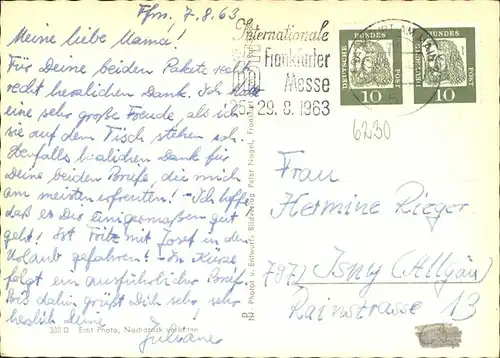 Ffm., 7.8.63
Meine liebe Mama!
Für Deine beiden Pakete recht
recht herzlichen Dank. Ich hatte
eine sehr große Freude, als ich
sie auf dem Tisch stehen sah.
Ebenfalls herzlichen Dank für
Deine beiden Briefe, die mich
am meisten erfreuten! - Ich hoffe
daß es Dir einigermaßen gut
geht! Ist Fritz mit Josef in den
Urlaub gefahren? - In Kürze
folgt ein ausführlicher Brief
Bis dahin grüßt Dich sehr, sehr
herzlich Deine
Juliane
330 D Echt Photo, Nachdruck verboten
PN Photos u. Entwurf: Bildverlag Peter Nagel, Frankfurt
Internationale
Frankfurter
Messe
25.-29.8.1963
DEUTSCHE BUNDES POST
10
DEUTSCHE BUNDES POST
10
6230
Frau
Hermine Rieger
7972 Isny (Allgäu)
Rainstrasse 13